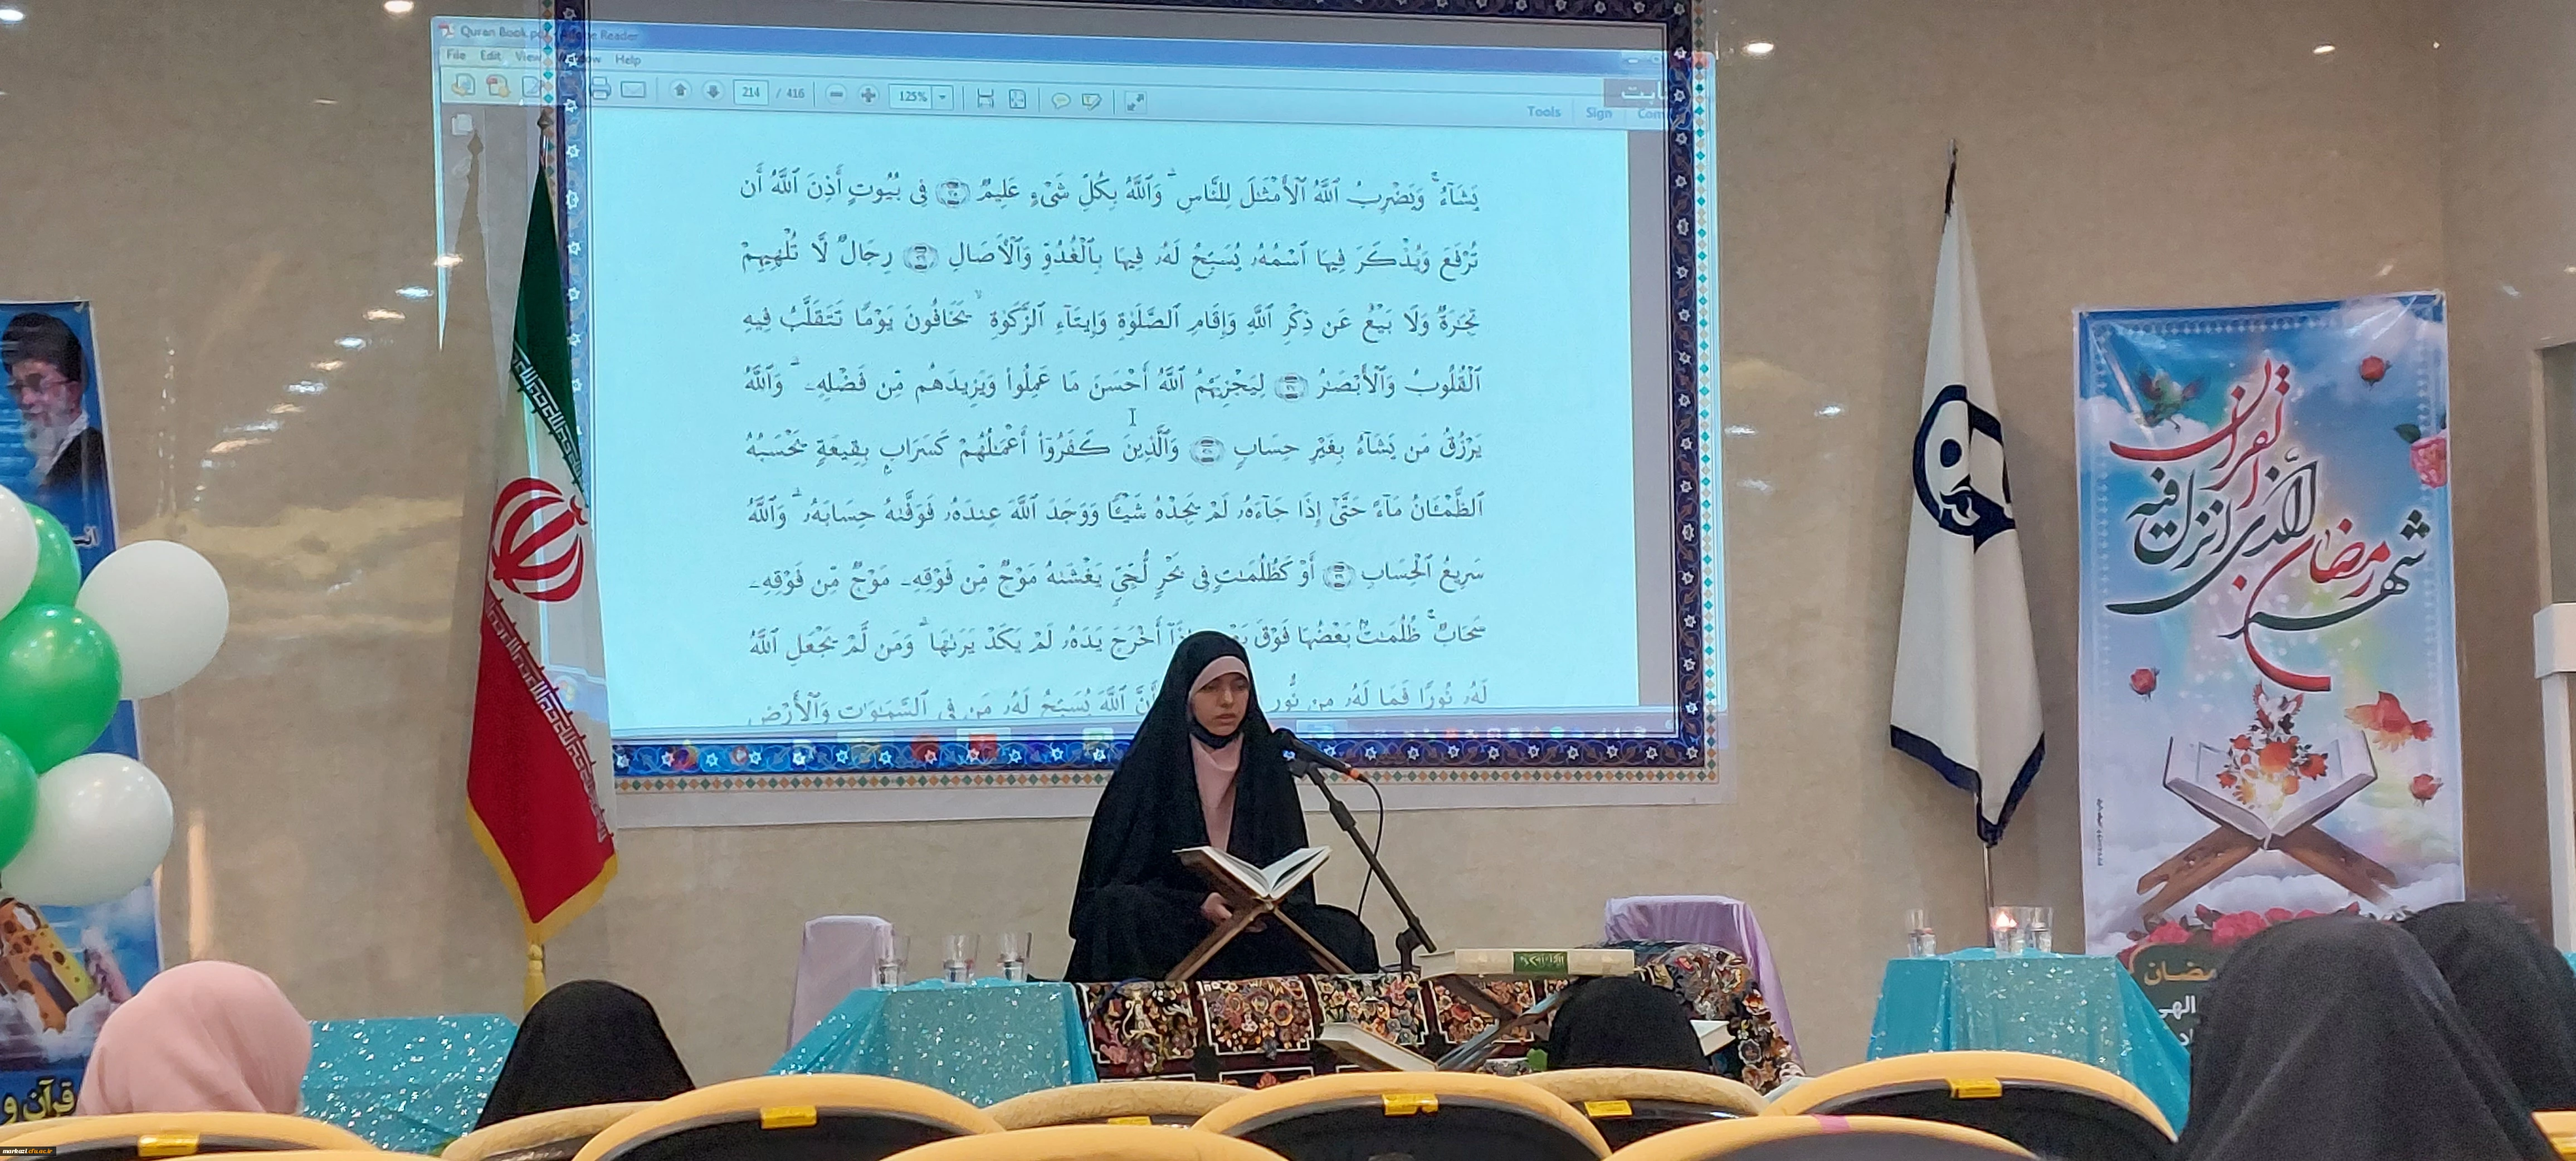 Quran Book.pdf - Adobe Reader
File Edit View Window Help
214 / 416 125%
Tools Sign Com
يَشَآءُ ۚ وَيَضْرِبُ ٱللَّهُ ٱلْأَمْثَـٰلَ لِلنَّاسِ ۗ وَٱللَّهُ بِكُلِّ شَىْءٍ عَلِيمٌ ۝٣٥ فِى بُيُوتٍ أَذِنَ ٱللَّهُ أَن
تُرْفَعَ وَيُذْكَرَ فِيهَا ٱسْمُهُۥ يُسَبِّحُ لَهُۥ فِيهَا بِٱلْغُدُوِّ وَٱلْـَٔاصَالِ ۝٣٦ رِجَالٌ لَّا تُلْهِيهِمْ
تِجَـٰرَةٌ وَلَا بَيْعٌ عَن ذِكْرِ ٱللَّهِ وَإِقَامِ ٱلصَّلَوٰةِ وَإِيتَآءِ ٱلزَّكَوٰةِ ۙ يَخَافُونَ يَوْمًا تَتَقَلَّبُ فِيهِ
ٱلْقُلُوبُ وَٱلْأَبْصَـٰرُ ۝٣٧ لِيَجْزِيَهُمُ ٱللَّهُ أَحْسَنَ مَا عَمِلُوا۟ وَيَزِيدَهُم مِّن فَضْلِهِۦ ۗ وَٱللَّهُ
يَرْزُقُ مَن يَشَآءُ بِغَيْرِ حِسَابٍ ۝٣٨ وَٱلَّذِينَ كَفَرُوٓا۟ أَعْمَـٰلُهُمْ كَسَرَابٍۭ بِقِيعَةٍ يَحْسَبُهُ
ٱلظَّمْـَٔانُ مَآءً حَتَّىٰٓ إِذَا جَآءَهُۥ لَمْ يَجِدْهُ شَيْـًٔا وَوَجَدَ ٱللَّهَ عِندَهُۥ فَوَفَّىٰهُ حِسَابَهُۥ ۗ وَٱللَّهُ
سَرِيعُ ٱلْحِسَابِ ۝٣٩ أَوْ كَظُلُمَـٰتٍ فِى بَحْرٍ لُّجِّىٍّ يَغْشَىٰهُ مَوْجٌ مِّن فَوْقِهِۦ مَوْجٌ مِّن فَوْقِهِۦ
سَحَابٌ ۚ ظُلُمَـٰتٌۢ بَعْضُهَا فَوْقَ إِذَآ أَخْرَجَ يَدَهُۥ لَمْ يَكَدْ يَرَىٰهَا ۗ وَمَن لَّمْ يَجْعَلِ ٱللَّهُ
لَهُۥ نُورًا فَمَا لَهُۥ مِن نُّورٍ أَنَّ ٱللَّهَ يُسَبِّحُ لَهُۥ مَن فِى ٱلسَّمَـٰوَٰتِ وَٱلْأَرْضِ
شهر رمضان
الذی انزل فیه
القرآن
رمضان
الهی
قرآن و
markazi.cfu.ac.ir